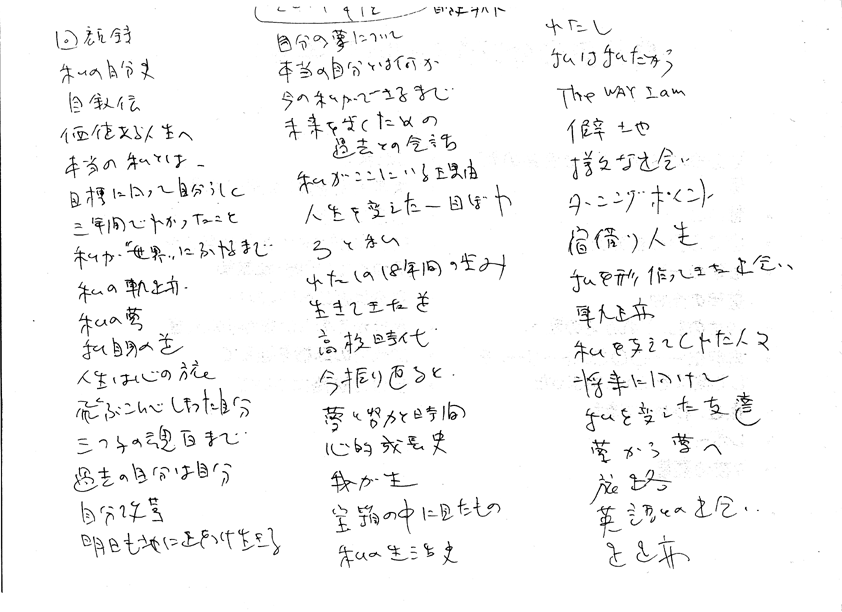 回顧録
私の自分史
自叙伝
価値ある人生へ
本当の私とは
目標に向って自分らしく
三年間でわかったこと
私が"世界"にふれるまで
私の軌跡
私の夢
私自身の道
人生はじの旅
飛ぶこんでしまった自分
三つ子の魂百まで
過去の自分は自分
自分改革
明日も地に足をつけ生きる
自分の夢について
本当の自分とは何か
今の私ができるまで
未来を生くための
過去との会話
私がここにいる理由
人生を変えた一目ぼれ
ろと私
わたしの18年間の歩み
生きてきた道
高校時代
今振り返ると
夢と努力と時間
心的成長史
我が生
宝箱の中に見たもの
私の生活史
わたし
私は私だから
The WAY I am
様々な出会い
ターニングポイント
宿借り人生
私を形作ってきた出会い
軌跡
私を支えてくれた人々
将来に向けて
私を変えた友達
夢から夢へ
旅路
英語との出会い
足跡